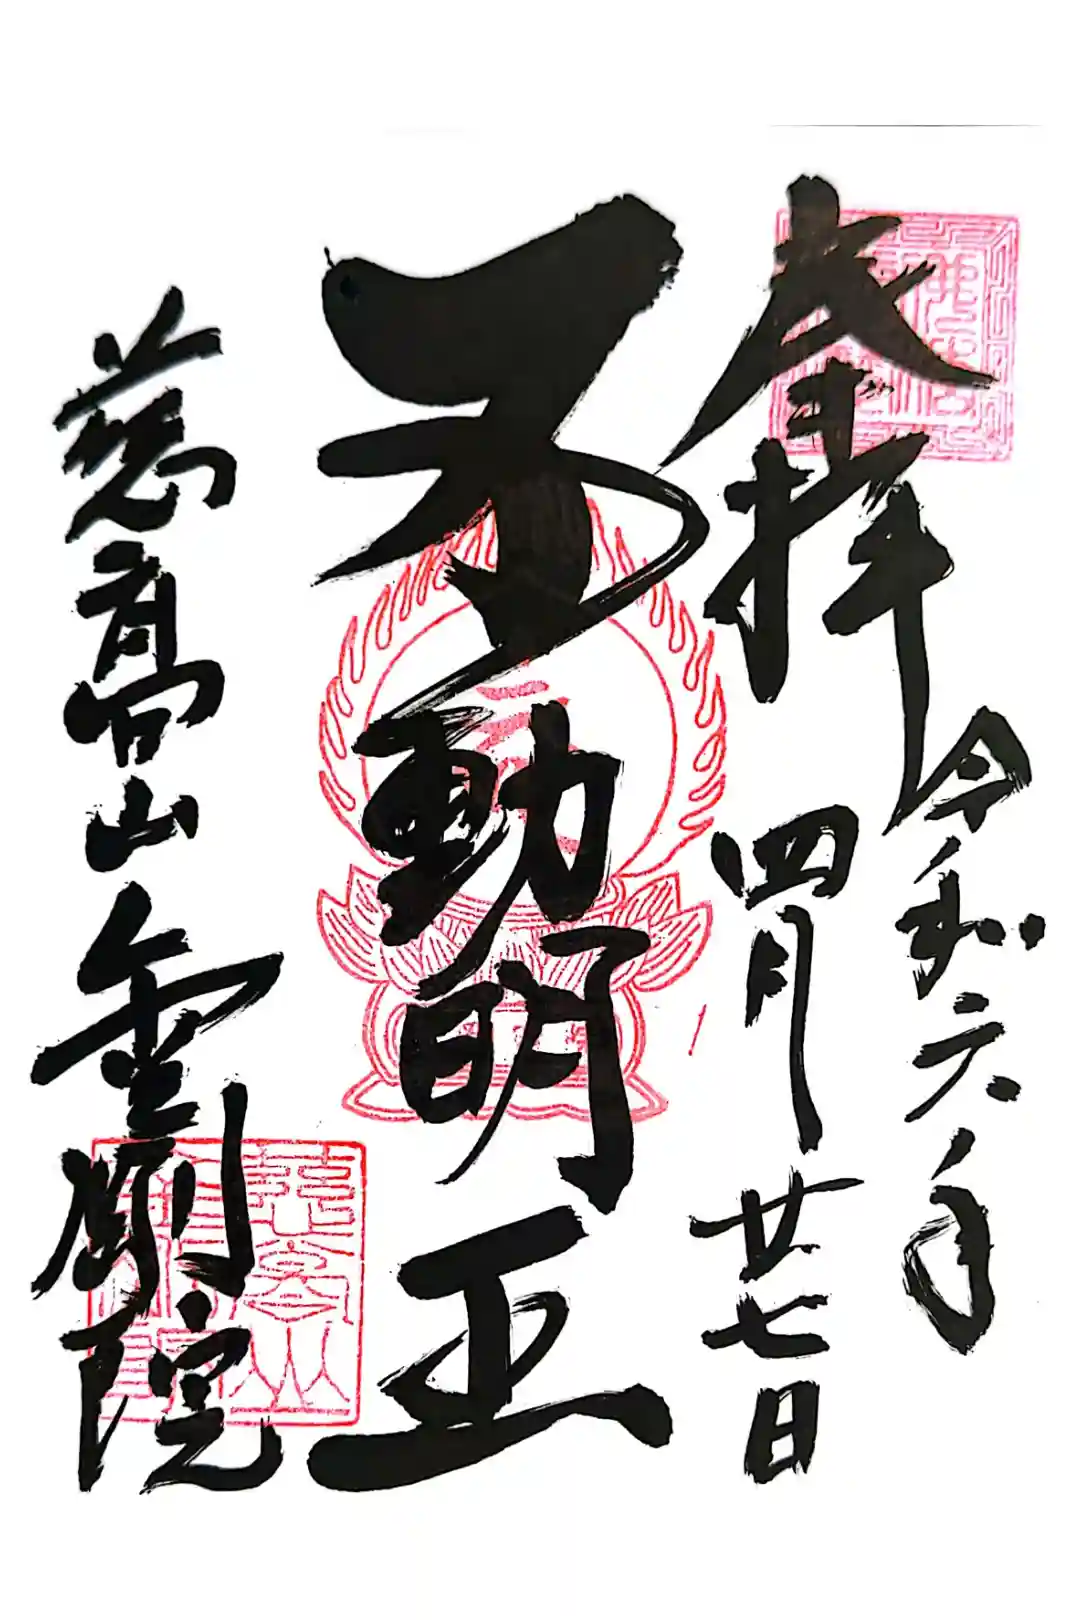 奉拝
令和六年
四月廿七日
不動明王
慈高山金剛院